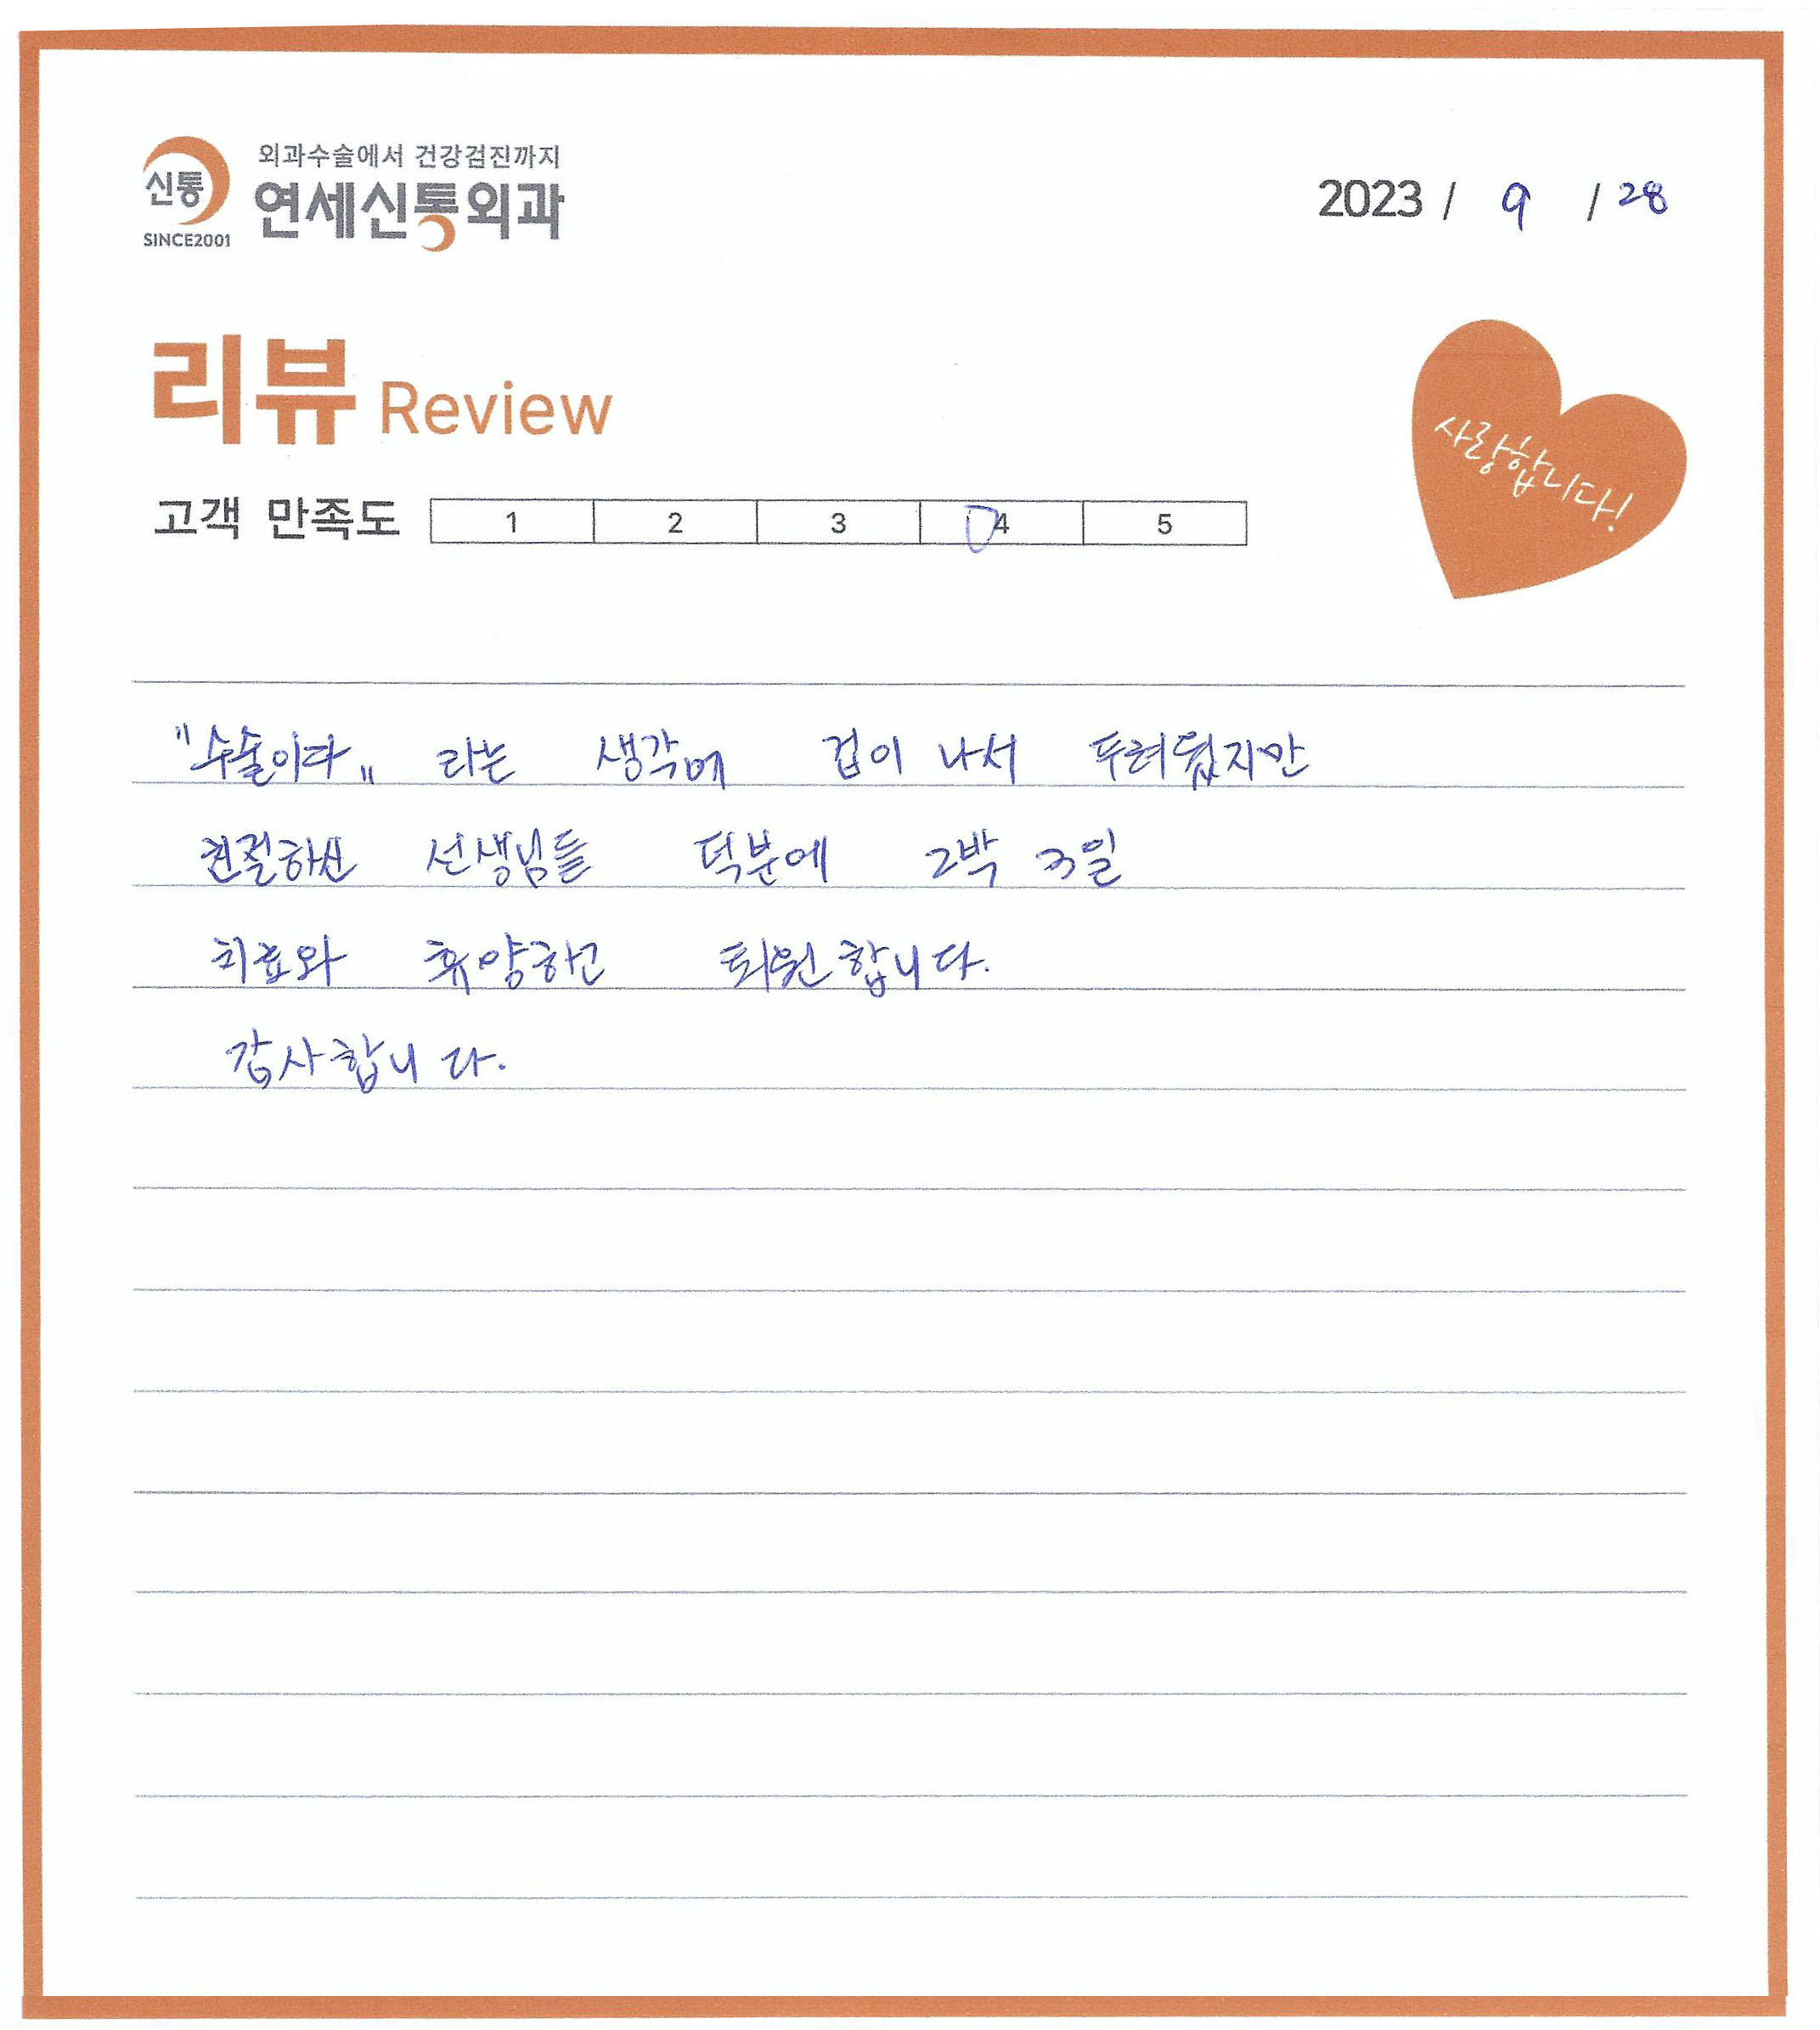 신통
SINCE2001
외과수술에서 건강검진까지
연세신통외과
2023 / 9 / 28
리뷰 Review
사랑합니다!
고객 만족도 1 2 3 4 5
"수술이다„ 라는 생각에 겁이 나서 두려웠지만
친절하신 선생님들 덕분에 2박 3일
치료와 휴양하고 퇴원합니다.
감사합니다.